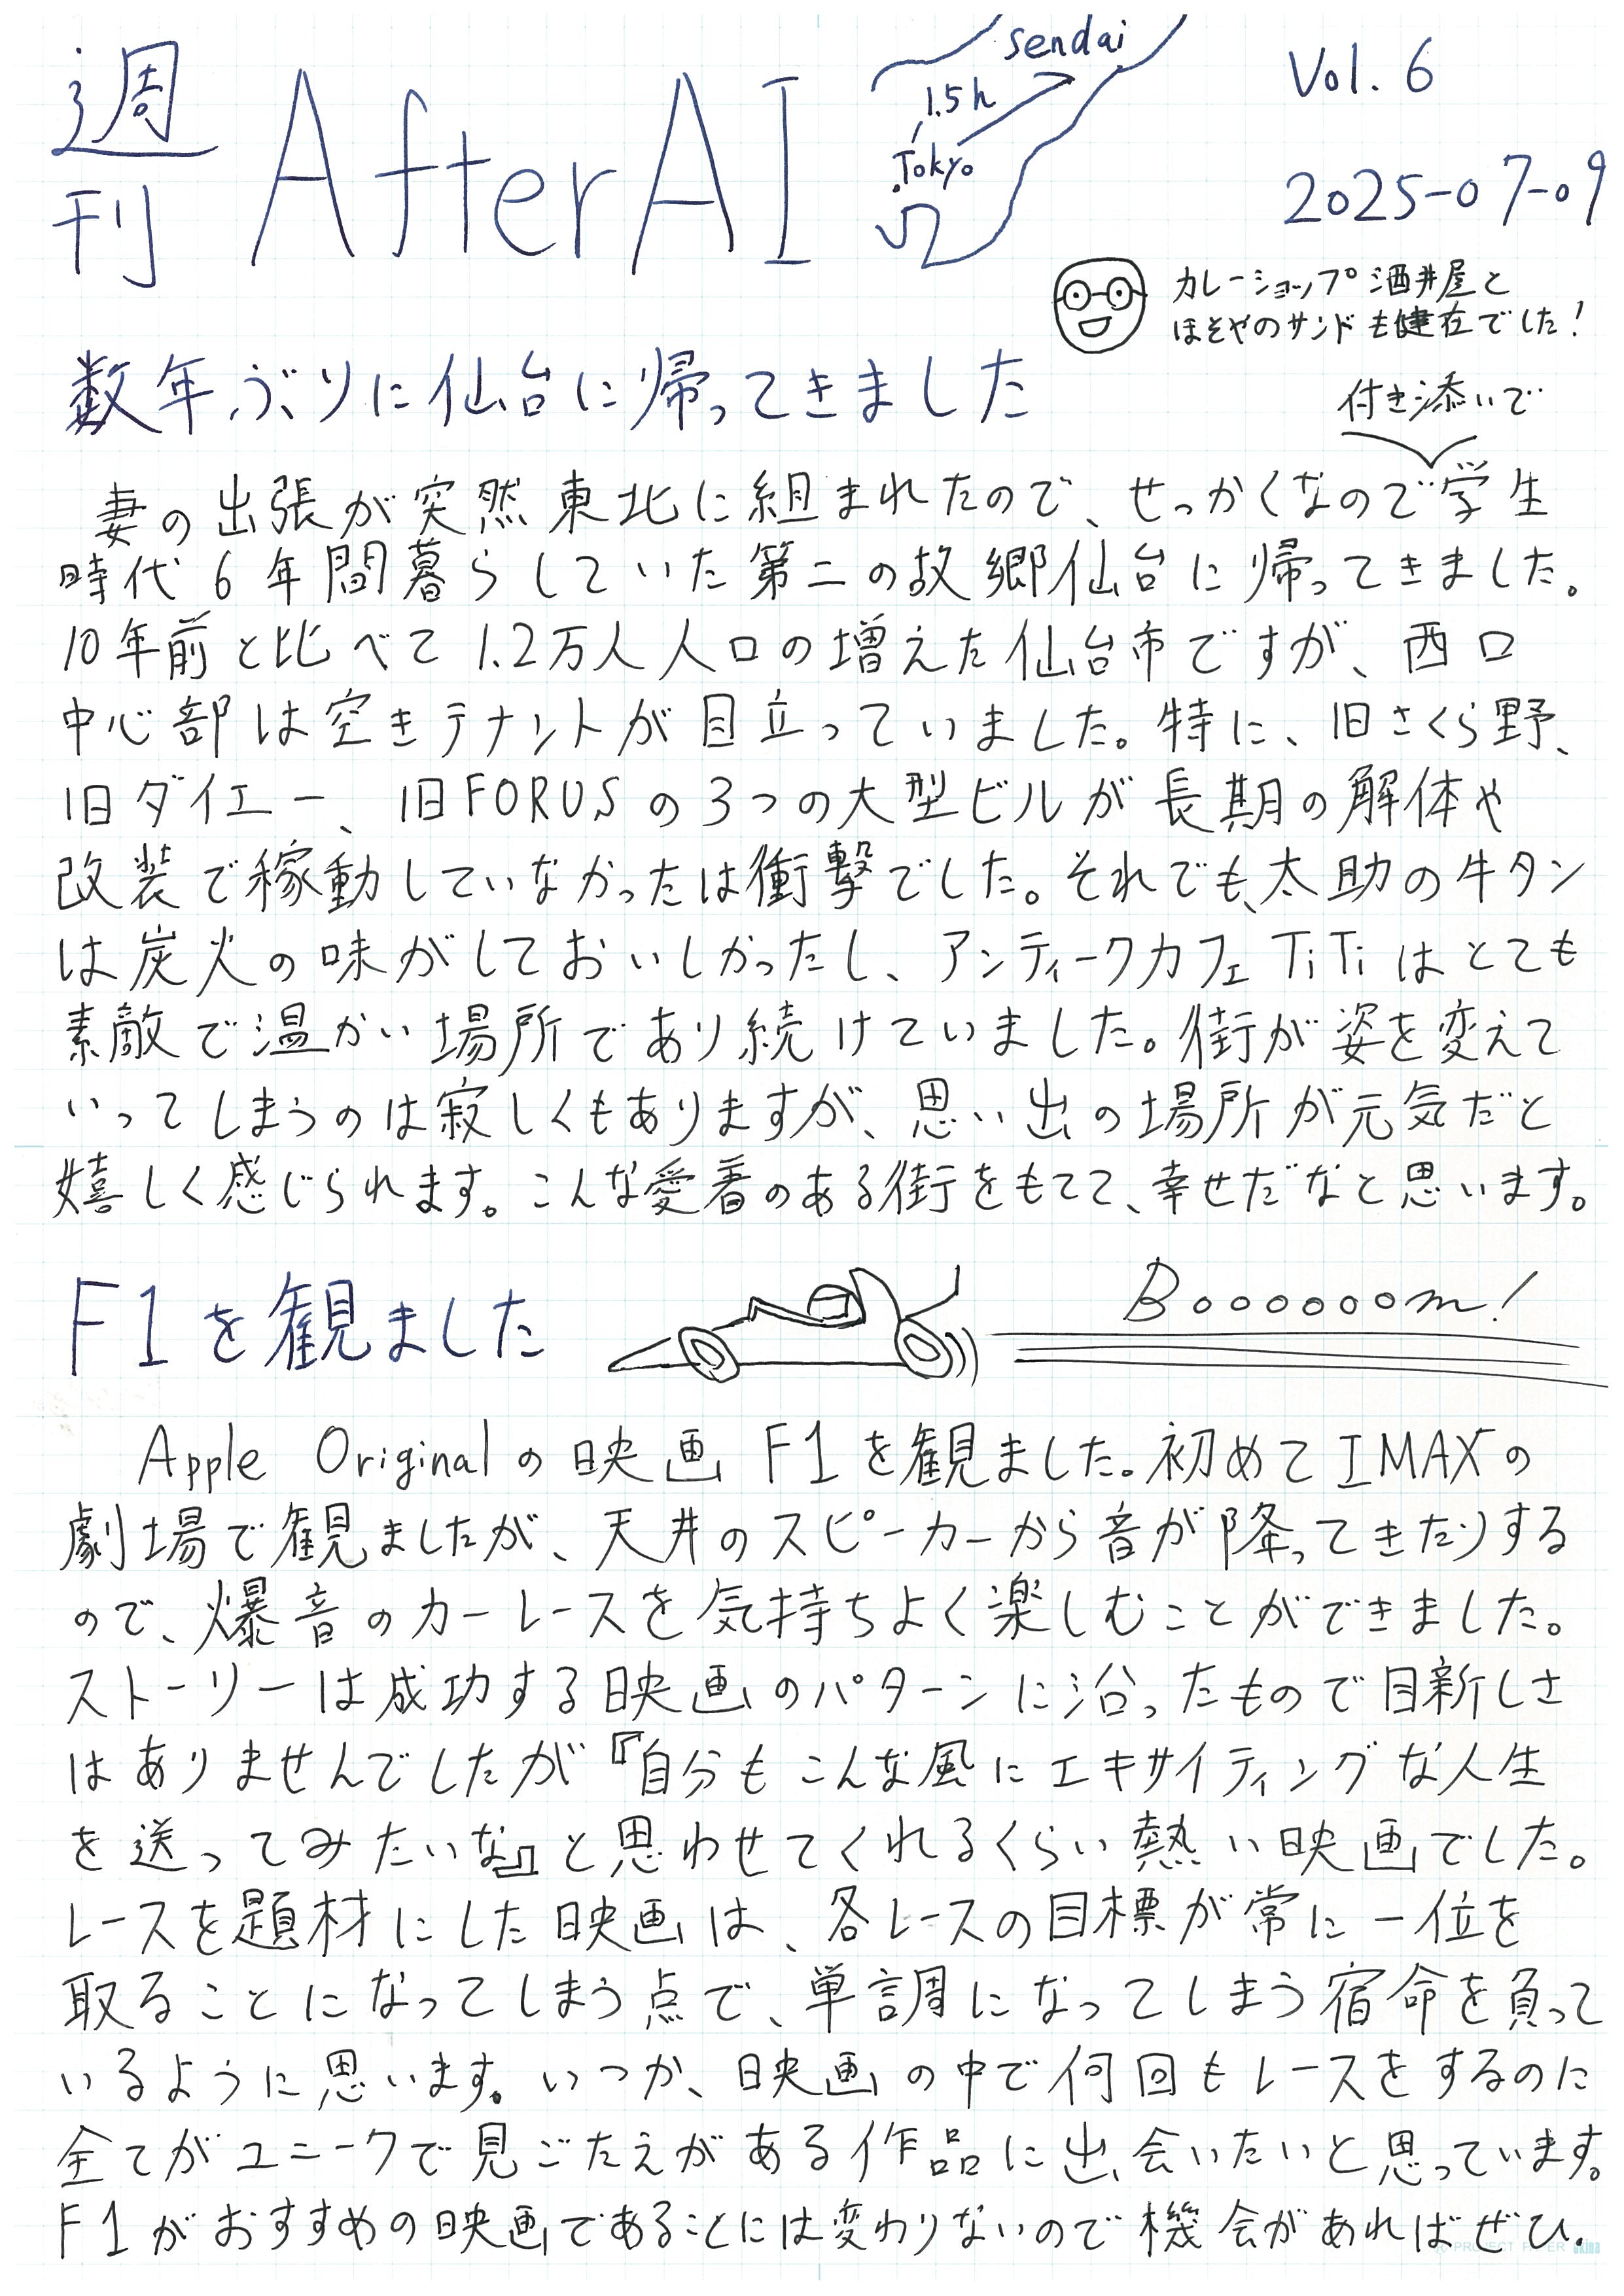 週刊 AfterAI
Sendai
1.5h
Tokyo
Vol. 6
2025-07-09
カレーショップ酒井屋と
ほそやのサンドも健在でした！
数年ぶりに仙台に帰ってきました
付き添いで
妻の出張が突然東北に組まれたので、せっかくなので学生
時代6年間暮らしていた第二の故郷仙台に帰ってきました。
10年前と比べて1.2万人人口の増えた仙台市ですが、西口
中心部は空きテナントが目立っていました。特に、旧さくら野、
旧ダイエー、旧FORUSの3つの大型ビルが長期の解体や
改装で稼動していなかったは衝撃でした。それでも、太助の牛タン
は炭火の味がしておいしかったし、アンティークカフェTiTiはとても
素敵で温かい場所であり続けていました。街が姿を変えて
いってしまうのは寂しくもありますが、思い出の場所が元気だと
嬉しく感じられます。こんな愛着のある街をもてて、幸せだなと思います。
F1を観ました
Boooooom!
Apple Originalの映画F1を観ました。初めてIMAXの
劇場で観ましたが、天井のスピーカーから音が降ってきたりする
ので、爆音のカーレースを気持ちよく楽しむことができました。
ストーリーは成功する映画のパターンに沿ったもので目新しさ
はありませんでしたが『自分もこんな風にエキサイティングな人生
を送ってみたいな』と思わせてくれるくらい熱い映画でした。
レースを題材にした映画は、各レースの目標が常に一位を
取ることになってしまう点で、単調になってしまう宿命を負って
いるように思います。いつか、映画の中で何回もレースをするのに
全てがユニークで見ごたえがある作品に出会いたいと思っています。
F1がおすすめの映画であることには変わりないので機会があればぜひ。
PROJECT PAPER okina